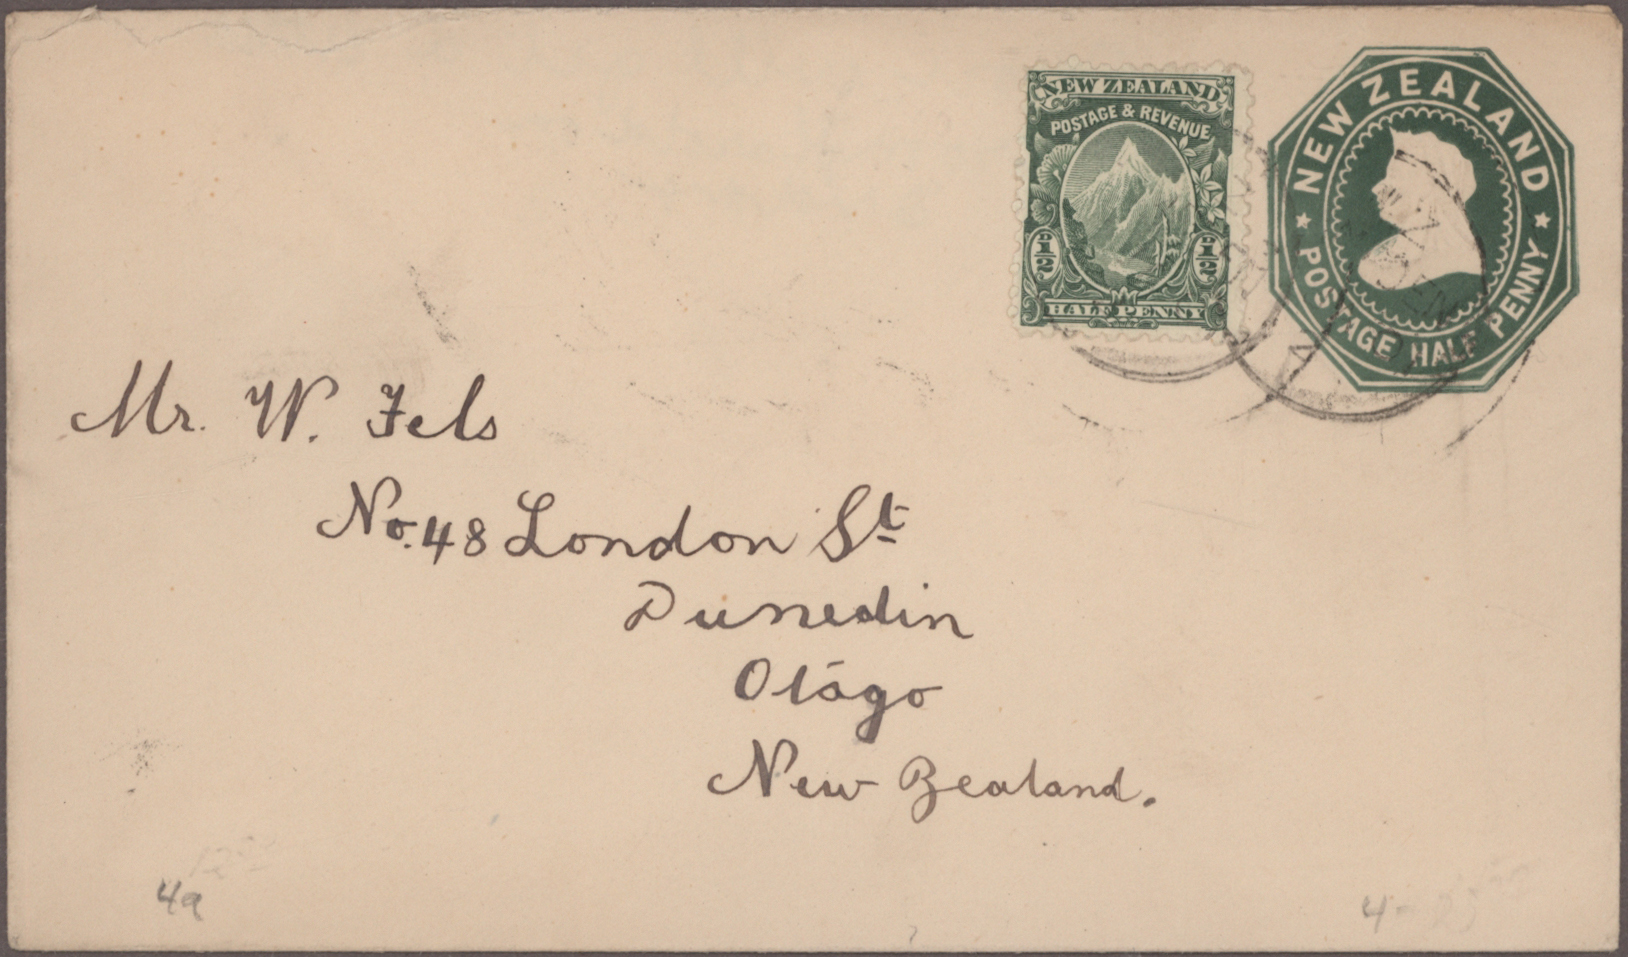 NEW ZEALAND
POSTAGE & REVENUE
D 1/2
D 1/2
HALF PENNY
NEW ZEALAND
POSTAGE HALF PENNY
Mr. W. Fels
No. 48 London St
Dunedin
Otago
New Zealand.
4a
4-